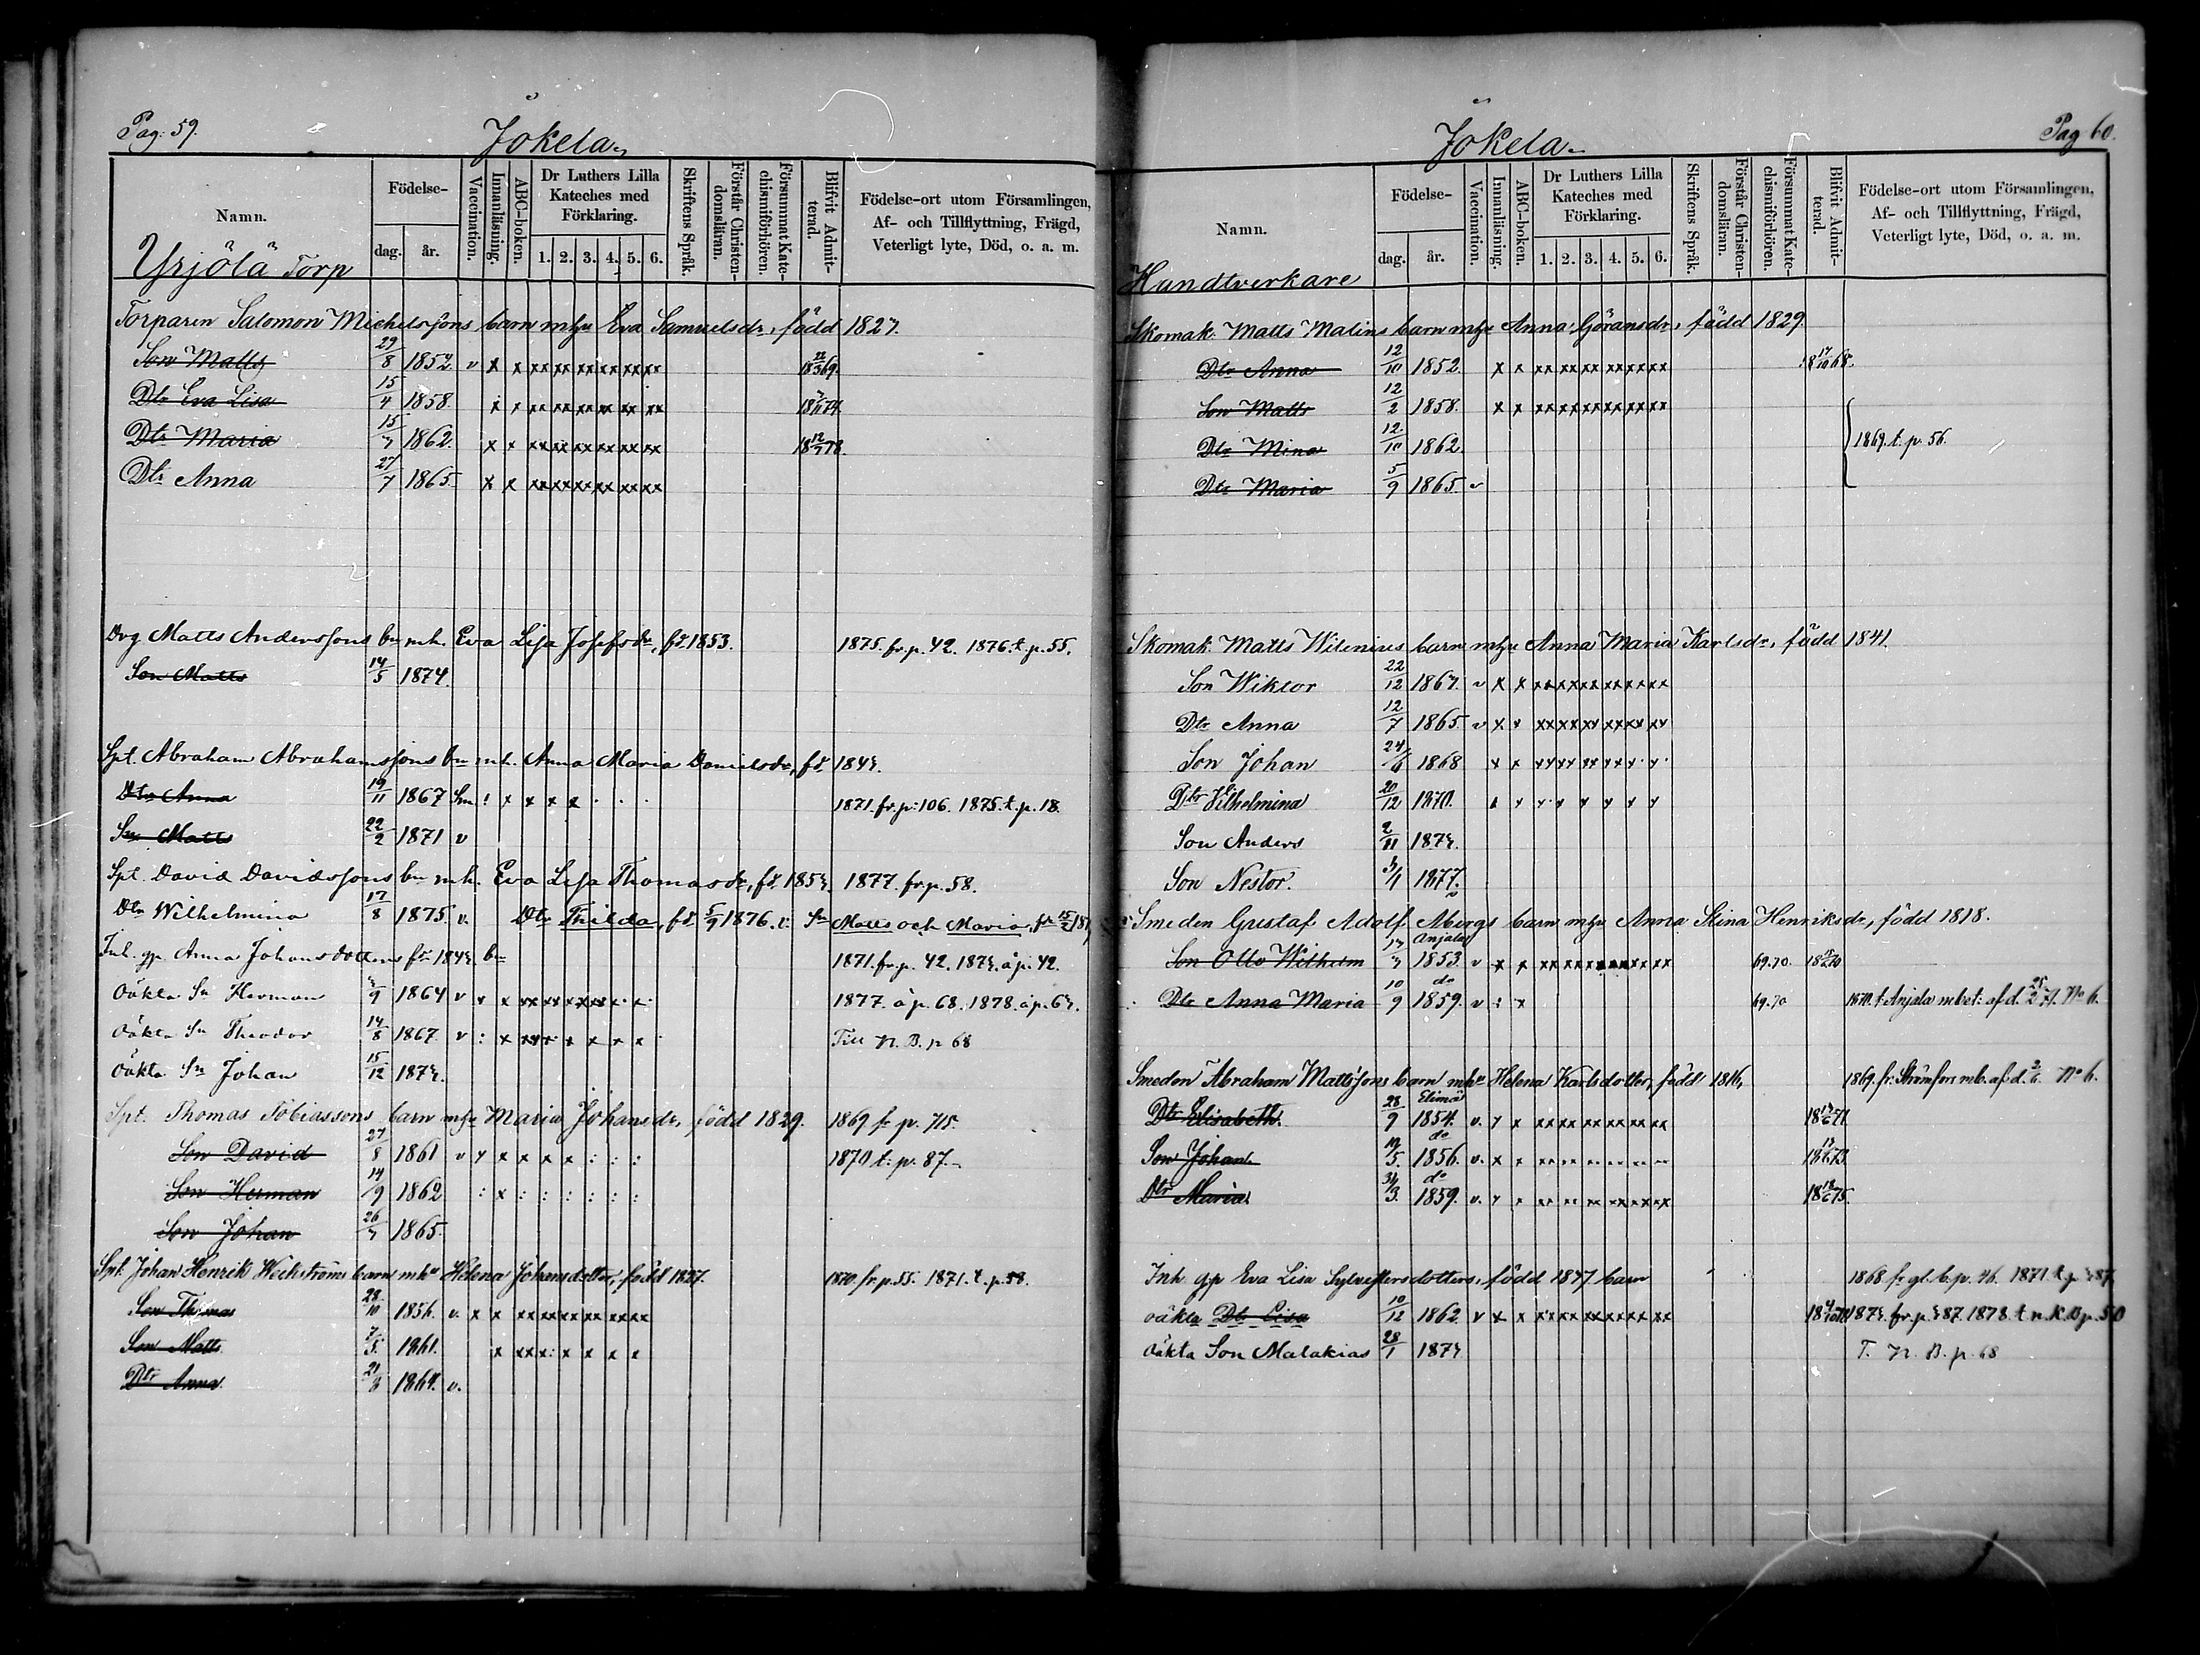 Pag: 59.
Jokela
Namn.
Födelse-
dag.
år.
Vaccination.
Innanläsning.
ABC-boken.
Dr Luthers Lilla Kateches med Förklaring.
1. 2. 3. 4. 5. 6.
Skriftens Språk.
Förstår Christendomsläran.
Försummat Katechismiförhören.
Blifvit Admitterad.
Födelse-ort utom Församlingen,
Af- och Tillflyttning, Frägd,
Veterligt lyte, Död, o. a. m.
Yrjölä Torp
Torparen Salomon Michelssons barn mhu Eva Samuelsdr, född 1827.
Son Matts 29/8 1852 v x x xx xx xx xx xx xx
Dtr Eva Lisa 15/4 1858. x x xx xx xx xx xx xx
Dtr Maria 15/7 1862. x x xx xx xx xx xx xx 18 12/7 78.
Dtr Anna 27/7 1865 x x xx xx xx xx xx xx
Drg Matts Anderssons bn mh. Eva Lisa Josefsdr, fd. 1853. 1875. fr. p. 42. 1876. t. p. 55.
Son Matts 14/5 1874.
Spt. Abraham Abrahamssons bn mh. Anna Maria Danielsdr, fd.
Dtr Anna 19/11 1867 1871. fr. p. 106. 1875. t. p. 18.
Sn Matts 22/2 1871 v
Spt. David Davidssons bn mh. Eva Lisa Thomasdr, fd. 1877. fr. p. 58.
Dtr Wilhelmina 17/8 1875. v. Dtr Thilda, fd. 5/9 1876. v. Sn Matts och Maria
Inh. gp. Anna Johansdotters bn 1871. fr. p. 42.
Oäkta Sn Herman 1864 v 1877. å p. 68. 1878.
Oäkta Sn Theodor 14/8 1867. v Till N. B. p 68
Oäkta Sn Johan 15/12
Spt. Thomas Tobiassons barn mhu Maria Johansdr, född 1829. 1869 fr p. 715.
Son David 27/8 1861 v x x x x x : : : 1870 t. p. 87.
Son Herman 14/9 1862 : x : : : : : :
Son Johan 26/7 1865.
Spt. Johan Henrik Weckströms barn mhu Helena Johansdotter, född 1827. 1870. fr. p. 55. 1871. t. p. 58.
Son Thomas 28/10 1856. v. x x xx xx xx xx xx xx
Son Matts 7/5 1861.
Dtr Anna 21/3 1864. v.
Pag 60.
Jokela
Namn.
Födelse-
dag.
år.
Vaccination.
Innanläsning.
ABC-boken.
Dr Luthers Lilla Kateches med Förklaring.
1. 2. 3. 4. 5. 6.
Skriftens Språk.
Förstår Christendomsläran.
Försummat Katechismiförhören.
Blifvit Admitterad.
Födelse-ort utom Församlingen,
Af- och Tillflyttning, Frägd,
Veterligt lyte, Död, o. a. m.
Handtverkare
Skomak. Matts Malins barn mhu Anna Göransdr, född 1829.
Dtr Anna 12/10 1852. x x xx xx xx xx xx xx 18 17/10 68.
Son Matts 12/2 1858. x x xx xx xx xx xx xx
Dtr Mina 12/10 1862. 1869. t. p. 56.
Dtr Maria 5/9 1865. v
Skomak. Matts Witenius barn mhu Anna Maria Karlsdr, född 1841.
Son Wiktor 22/12 v x x xx xx xx xx xx xx
Dtr Anna 12/7 1865. v x x xx xx xx xx xx xx
Son Johan 24/6 1868 x x
Dtr Vilhelmina 20/12 1870.
Son Anders 2/11
Son Nestor. 1877.
Smeden Gustaf Adolf Abergs barn mhu Anna Stina Henriksdr, född 1818.
Anjala
Son Otto Wilhelm 1853. v x x xx xx xx xx xx xx 69.70.
do
Dtr Anna Maria 10/9 1859. v : x 69.70 1870. t. Anjala m. bet: af d. 25/2 71. No 6.
Smeden Abraham Mattssons barn mhu Helena Karlsdotter, född 1816. 1869. fr. Strömfors mb. af d. 2/6. No 6.
Elimä
Dtr Elisabeth. 28/9 1854. v. x x xx xx xx xx xx xx
do
Son Johan. 1856. v. x x
do
Dtr Maria. 31/3 1859. v. x x
Inh. gp Eva Lisa Sylvestersdotters, född 1847 barn 1868 fr gl. b. p. 46. 1871. t. p.
oäkta Dtr Lisa 10/12 1862 v x x xx xx xx xx xx xx 1878 t. n. K. B p. 50
oäkta Son Malakias 28/1 T. N. B. p. 68